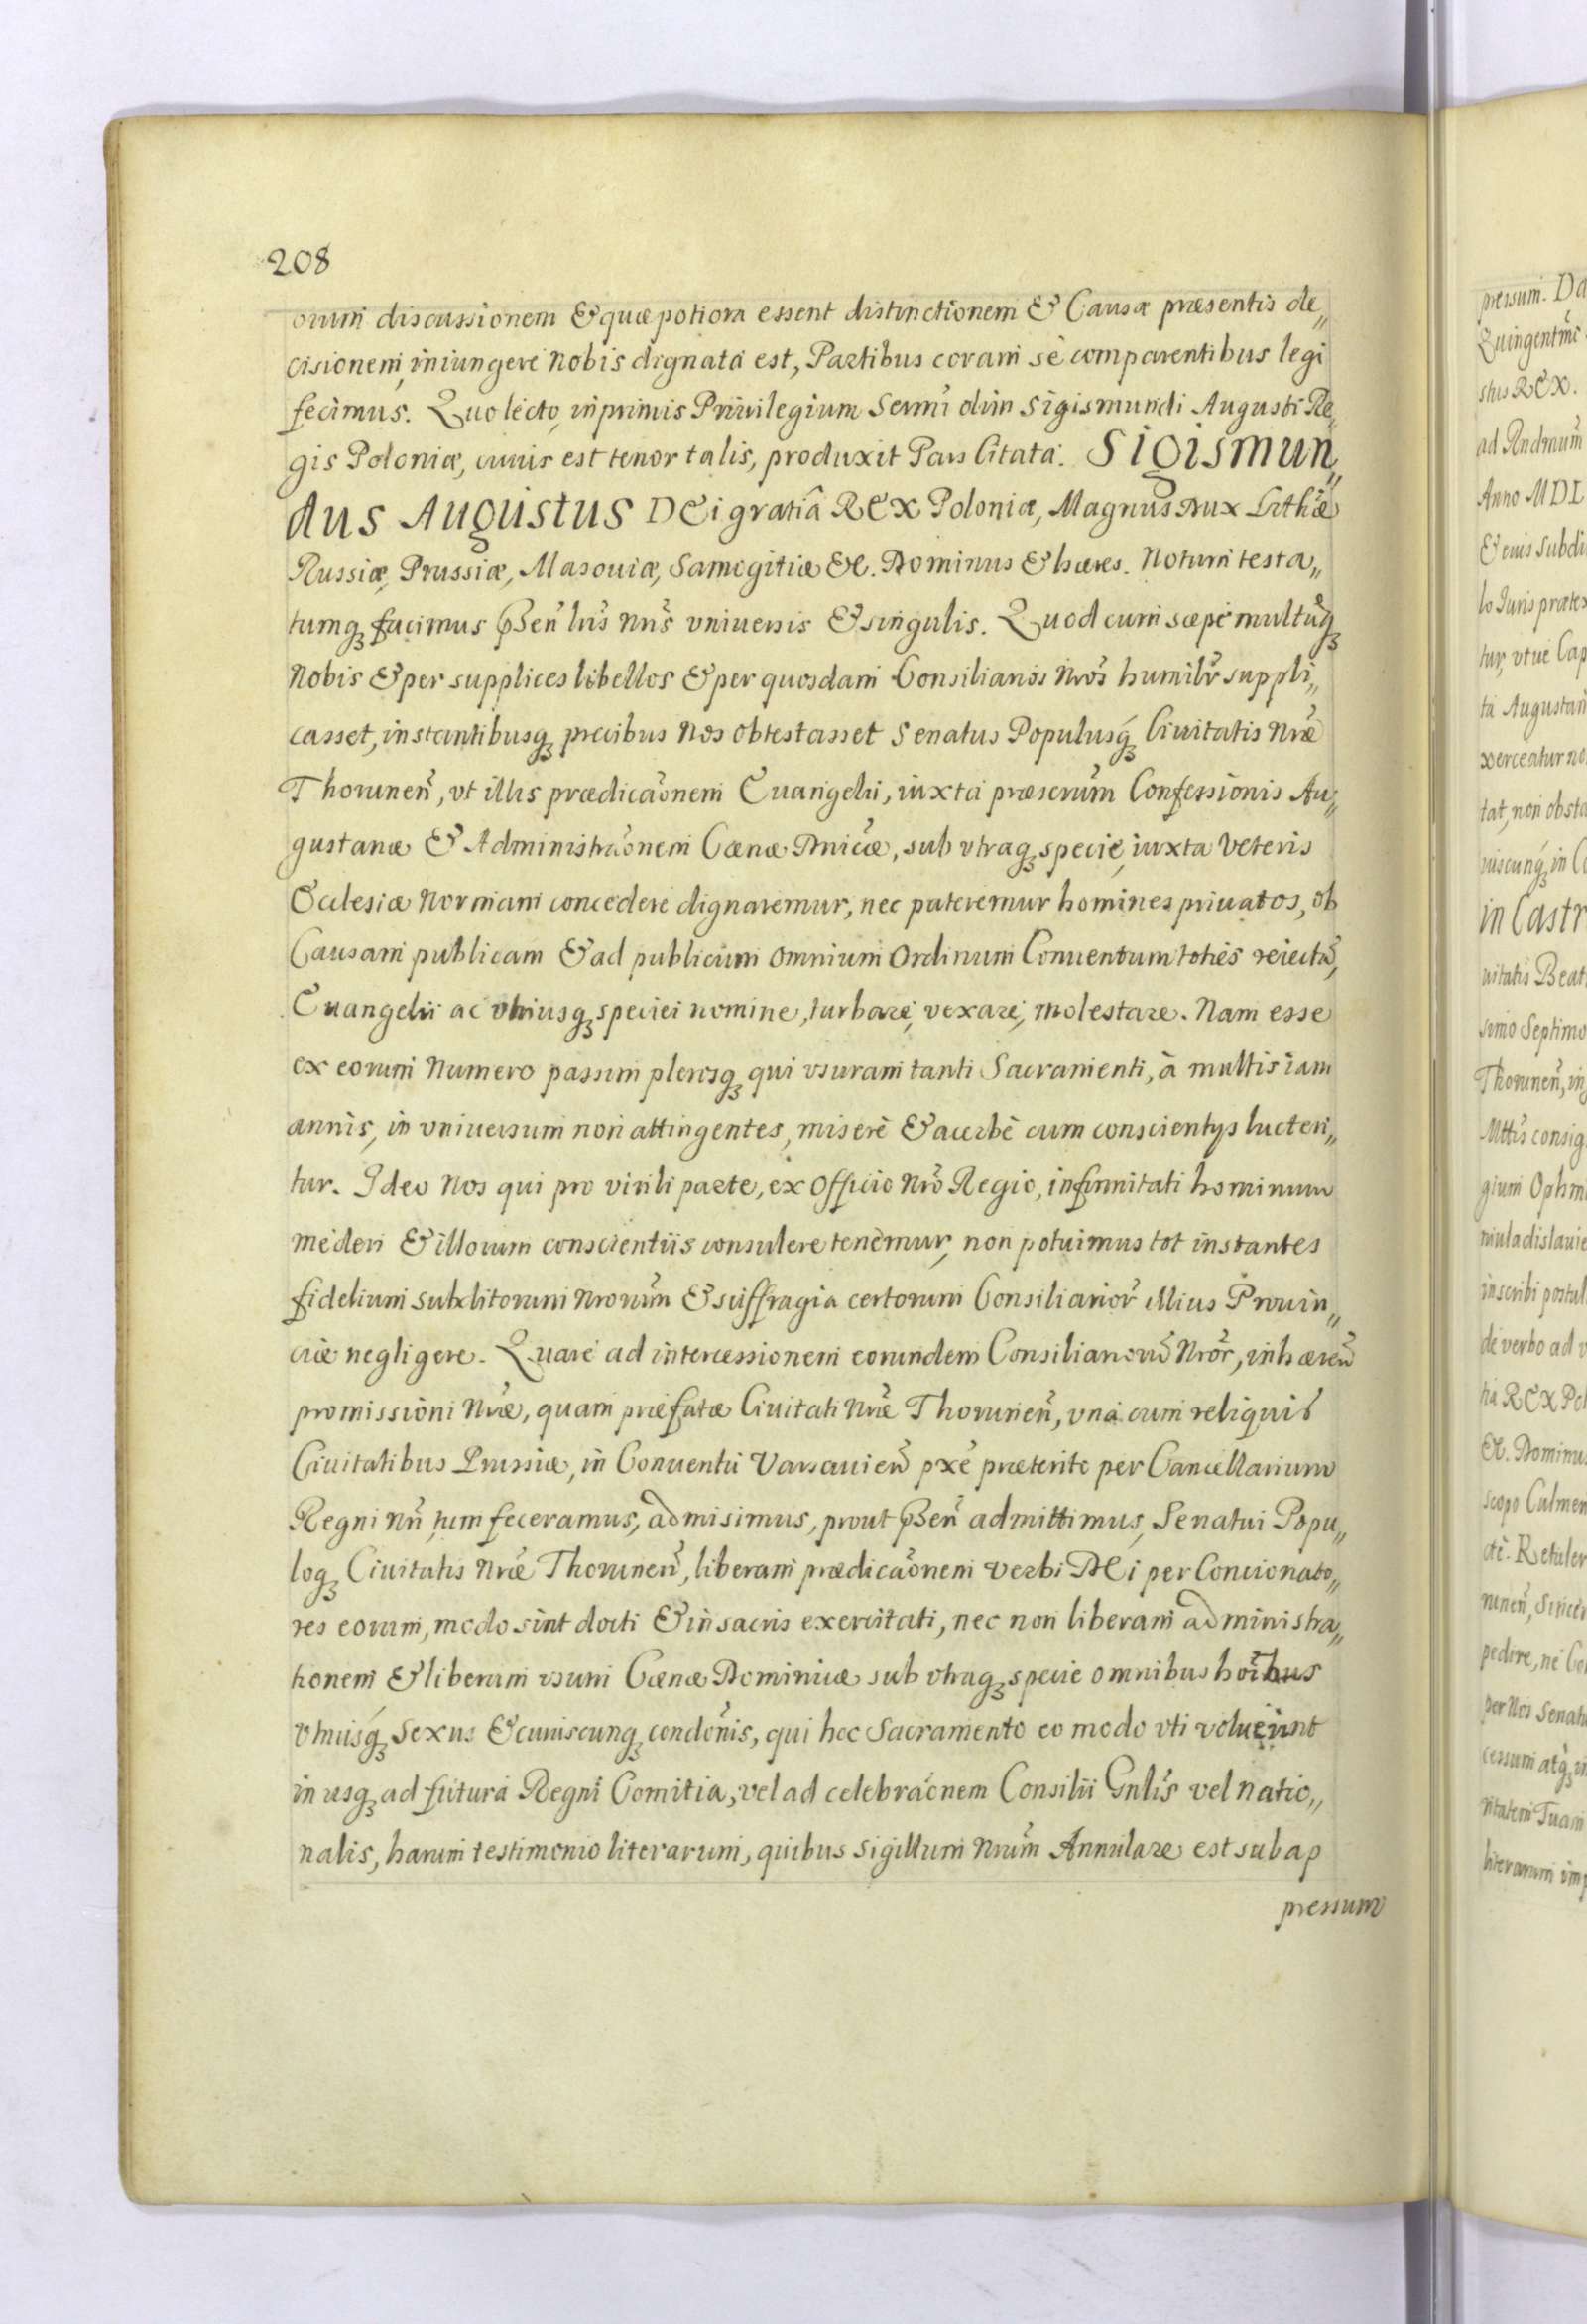 208
orum discussionem & quæ potiora essent distinctionem & Causæ præsentis de„
cisionem, iniungere nobis dignata est, Partibus coram se comparentibus legi
fecimus. Quo lecto, inprimis Priuilegium Sermi olim Sigismundi Augusti Re„
gis Poloniæ, cuius est tenor talis, produxit Pars Citata. Sigismun„
dus Augustus DEi gratiâ REX Poloniæ, Magnus Dux Lithæ
Russiæ, Prussiæ, Masouiæ, Samogitiæ &c. Dominus & hæres. Notum testa„
tumq facimus Psen̄ lris nris vniuersis & singulis. Quod cum sæpe multuq
nobis & per supplices libellos & per quosdam Consiliarios nros humilr suppli„
casset, instantibusq precibus nos obtestasset Senatus Populusq Ciuitatis nræ
Thorunen̄, vt illis prædicaonem Euangelii, iuxta præscrum Confessionis Au„
gustanæ & Administraonem Cænæ Dnicæ, sub vtraq specie, iuxta veteris
Ecclesiæ normam concedere dignaremur, nec pateremur homines priuatos, ob
Causam publicam & ad publicum omnium Ordinum Conuentum toties reiectā,
Euangelii ac vtriusq speciei nomine, turbare, vexare, molestare. Nam esse
ex eorum numero passim plerosq qui vsuram tanti Sacramenti, à multis iam
annis, in vniuersum non attingentes, miserè & acerbè cum conscientys lucten„
tur. Ideo nos qui pro virili parte, ex Officio nro Regio, infirmitati hominum
mederi & illorum conscientiis consulere tenemur, non potuimus tot instantes
fidelium subditorum nrorum & suffragia certorum Consiliarior illius Prouin„
ciæ negligere. Quare ad intercessionem eorundem Consiliariorū nror, inhæren̄
promissioni nræ, quam præfatæ Ciuitati nræ Thorunen̄, vna cum reliquis
Ciuitatibus Prussiæ, in Conuentu Varsauien̄ pxe præterito per Cancellarium
Regni nri, tum feceramus, admisimus, prout Psen̄ admittimus, Senatui Popu„
loq Ciuitatis nræ Thorunen̄, liberam prædicaonem verbi DEi per Concionato„
res eorum, modo sint docti & in sacris exercitati, nec non liberam administra„
tionem & liberum vsum Cænæ Dominicæ sub vtraq specie omnibus hoibus
vtriusq sexus & cuiuscunq condonis, qui hoc Sacramento eo modo vti voluerint
in usq ad futura Regni Comitia, vel ad celebraonem Consilii Gnlis vel natio„
nalis, harum testimonio literarum, quibus sigillum nrum Annulare est subap
pressum